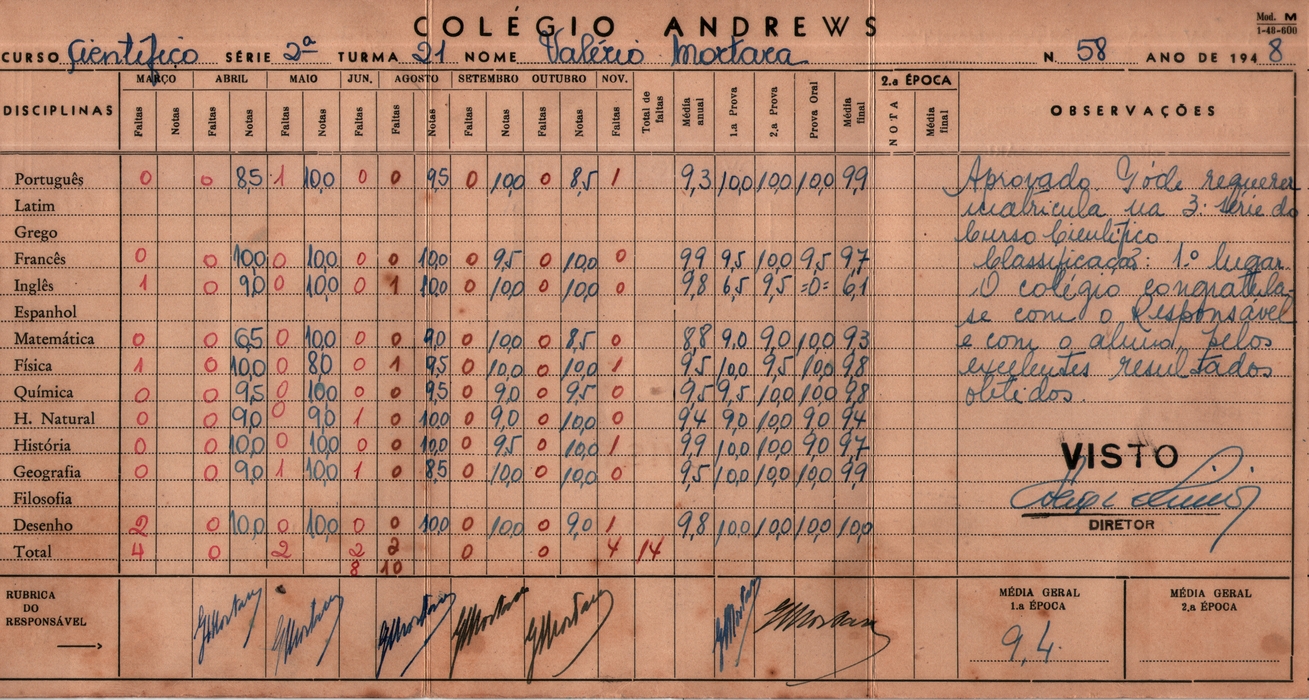 COLÉGIO ANDREWS
Mod. M
1-48-600
CURSO Científico SÉRIE 2ª TURMA 21 NOME Valério Mortara N. 58 ANO DE 1948
DISCIPLINAS MARÇO ABRIL MAIO JUN. AGOSTO SETEMBRO OUTUBRO NOV. 2.a ÉPOCA OBSERVAÇÕES
Faltas Notas Faltas Notas Faltas Notas Faltas Faltas Notas Faltas Notas Faltas Notas Faltas Total de faltas Média anual 1.a Prova 2.a Prova Prova Oral Média final NOTA Média final
Português 0 0 8,5 1 10,0 0 0 9,5 0 10,0 0 8,5 1 9,3 10,0 10,0 10,0 9,9
Latim
Grego
Francês 0 0 10,0 0 10,0 0 0 10,0 0 9,5 0 10,0 0 9,9 9,5 10,0 9,5 9,7
Inglês 1 0 9,0 0 10,0 0 1 10,0 0 10,0 0 10,0 0 9,8 6,5 9,5 =0= 6,1
Espanhol
Matemática 0 0 6,5 0 10,0 0 0 9,0 0 10,0 0 8,5 0 8,8 9,0 9,0 10,0 9,3
Física 1 0 10,0 0 8,0 0 1 9,5 0 10,0 0 10,0 1 9,5 10,0 9,5 10,0 9,8
Química 0 0 9,5 0 10,0 0 0 9,5 0 9,0 0 9,5 0 9,5 9,5 10,0 10,0 9,8
H. Natural 0 0 9,0 0 9,0 1 0 10,0 0 9,0 0 10,0 0 9,4 9,0 10,0 9,0 9,4
História 0 0 10,0 0 10,0 0 0 10,0 0 9,5 0 10,0 1 9,9 10,0 10,0 9,0 9,7
Geografia 0 0 9,0 1 10,0 1 0 8,5 0 10,0 0 10,0 0 9,5 10,0 10,0 10,0 9,9
Filosofia
Desenho 2 0 10,0 0 10,0 0 0 10,0 0 10,0 0 9,0 1 9,8 10,0 10,0 10,0 10,0
Total 4 0 2 2 2 0 0 4 14
8 10
Aprovado. Póde requerer
matrícula na 3ª série do
Curso Científico.
Classificação: 1.º lugar.
O colégio congratula-
se com o Responsável
e com o aluno, pelos
excelentes resultados
obtidos.
VISTO
DIRETOR
RUBRICA
DO
RESPONSÁVEL
GMortara GMortara GMortara GMortara GMortara GMortara GMortara
MÉDIA GERAL
1.a ÉPOCA
9,4
MÉDIA GERAL
2.a ÉPOCA